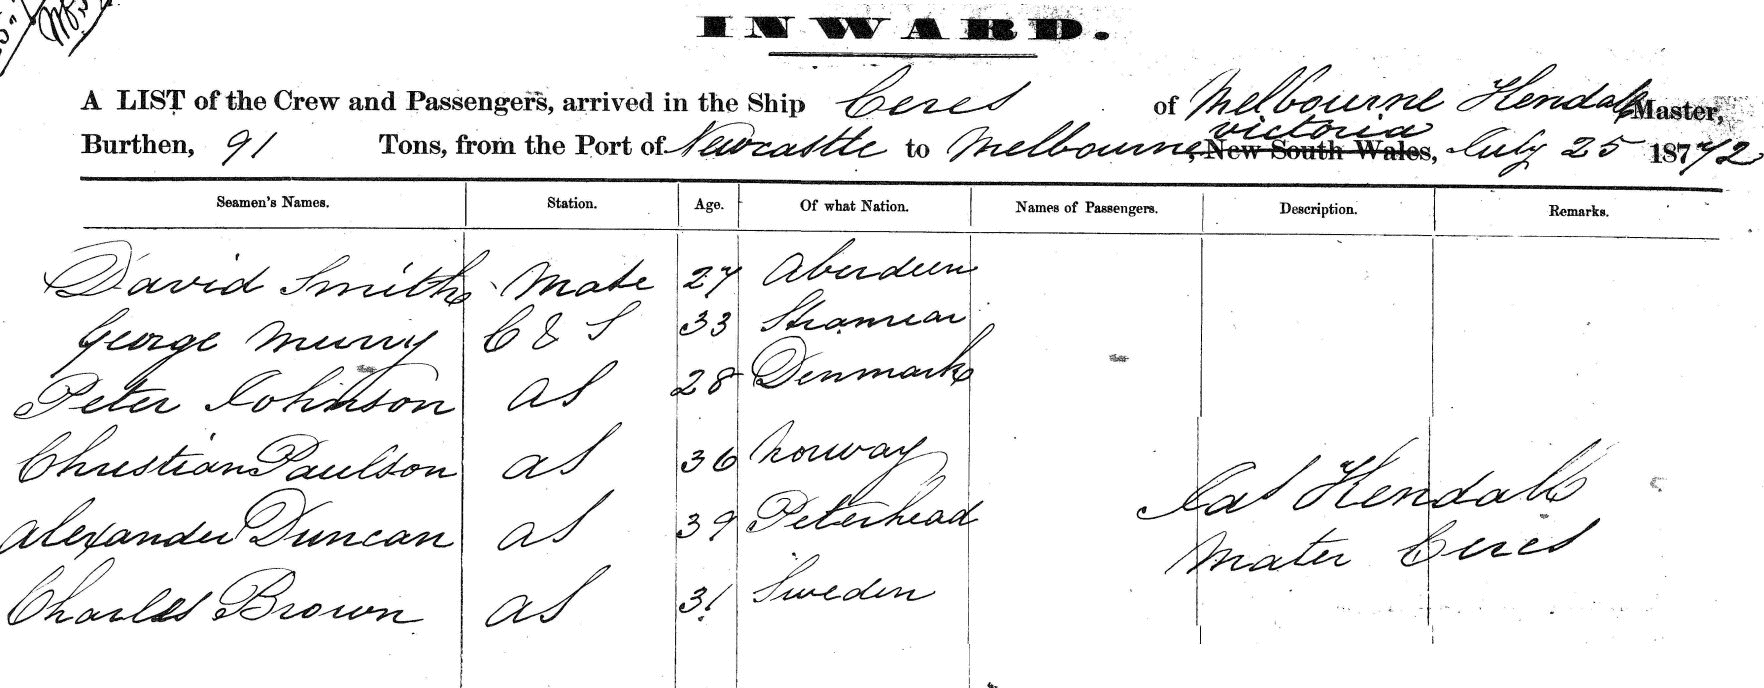 INWARD.
A LIST of the Crew and Passengers, arrived in the Ship Ceres of Melbourne Kendall Master,
Burthen, 91 Tons, from the Port of Newcastle to Melbourne, Victoria New South Wales, July 25 1872
Seamen's Names. Station. Age. Of what Nation. Names of Passengers. Description. Remarks.
David Smith Mate 27 Aberdeen
George Murry C & S 33 Stranrear
Peter Johnson AS 28 Denmark
Christian Paulson AS 36 Norway
Alexander Duncan AS 39 Peterhead
Charles Brown AS 31 Sweden
Jas Kendall
Mater Ceres